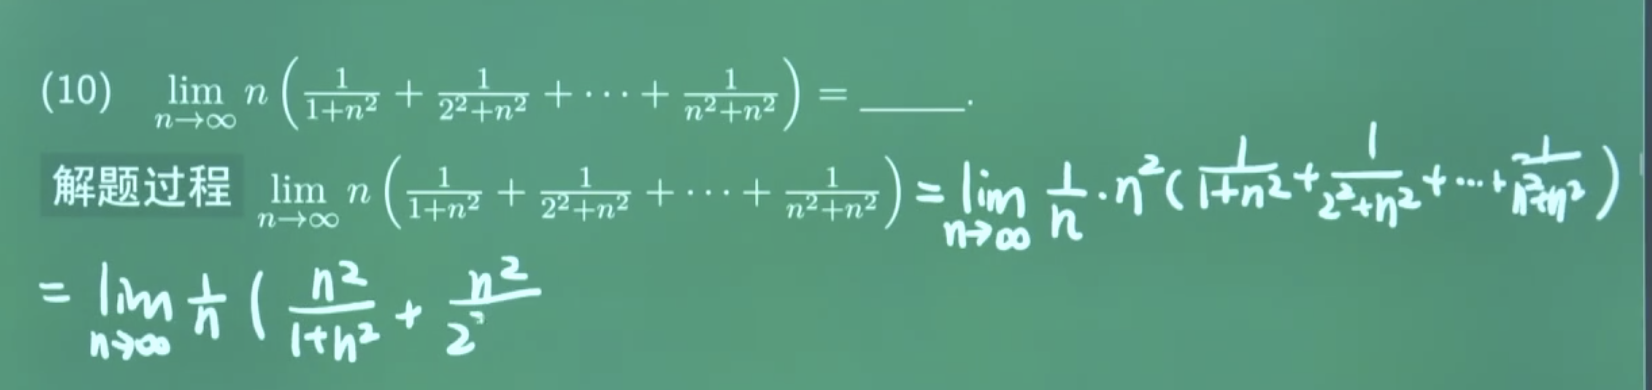 (10) lim_{n→∞} n(1/(1+n²) + 1/(2²+n²) + ⋯ + 1/(n²+n²)) = ______.
解题过程 lim_{n→∞} n(1/(1+n²) + 1/(2²+n²) + ⋯ + 1/(n²+n²)) = lim_{n→∞} 1/n · n²(1/(1+n²) + 1/(2²+n²) + ⋯ + 1/(n²+n²))
= lim_{n→∞} 1/n (n²/(1+n²) + n²/2²